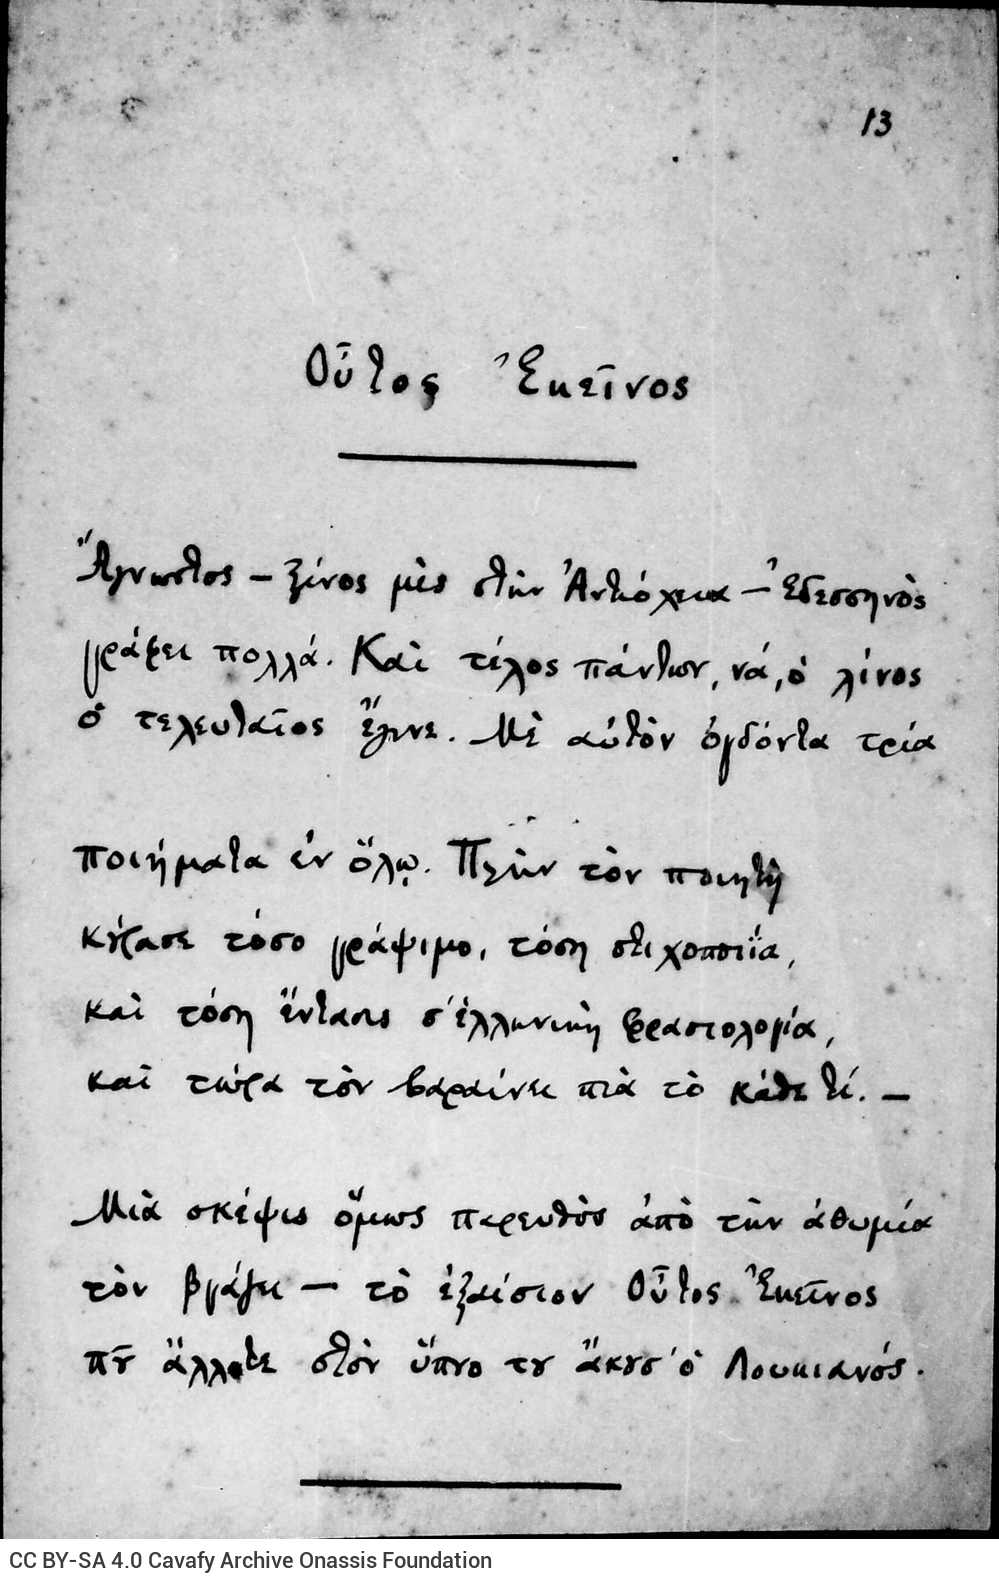 13
Οὗτος Ἐκεῖνος
Ἄγνωστος — ξένος μὲς στὴν Ἀντιόχεια — Ἐδεσσηνὸς
γράφει πολλά. Καὶ τέλος πάντων, νά, ὁ λίνος
ὁ τελευταῖος ἔγινε. Μὲ αὐτὸν ὀγδόντα τρία
ποιήματα ἐν ὅλῳ. Πλὴν τὸν ποιητὴ
κούρασε τόσο γράψιμο, τόση στιχοποιΐα,
καὶ τόση ἔντασις σ' ἑλληνικὴ φρασιολογία,
καὶ τώρα τὸν βαραίνει πιὰ τὸ κάθε τί. —
Μιὰ σκέψις ὅμως παρευθὺς ἀπὸ τὴν ἀθυμία
τὸν βγάζει — τὸ ἐξαίσιον Οὗτος Ἐκεῖνος
ποῦ ἄλλοτε στὸν ὕπνο του ἄκουσ' ὁ Λουκιανός.
CC BY-SA 4.0 Cavafy Archive Onassis Foundation